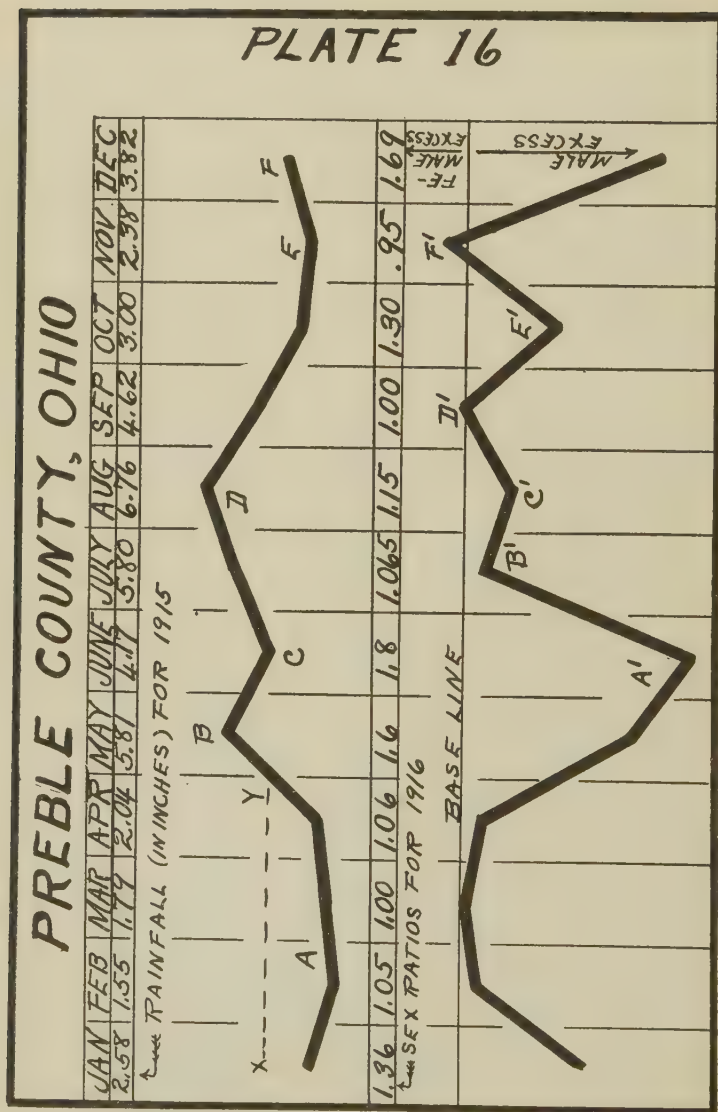 PLATE 16
PREBLE COUNTY, OHIO
JAN FEB MAR APR MAY JUNE JULY AUG SEP OCT NOV DEC
2.58 1.55 1.79 2.04 5.81 4.17 5.80 6.76 4.62 3.00 2.38 3.82
RAINFALL (IN INCHES) FOR 1915
X Y
A B C D E F
1.36 1.05 1.00 1.06 1.6 1.8 1.065 1.15 1.00 1.30 .95 1.69
SEX RATIOS FOR 1916
FE-
MALE
EXCESS
BASE LINE
MALE
EXCESS
A' B' C' D' E' F'